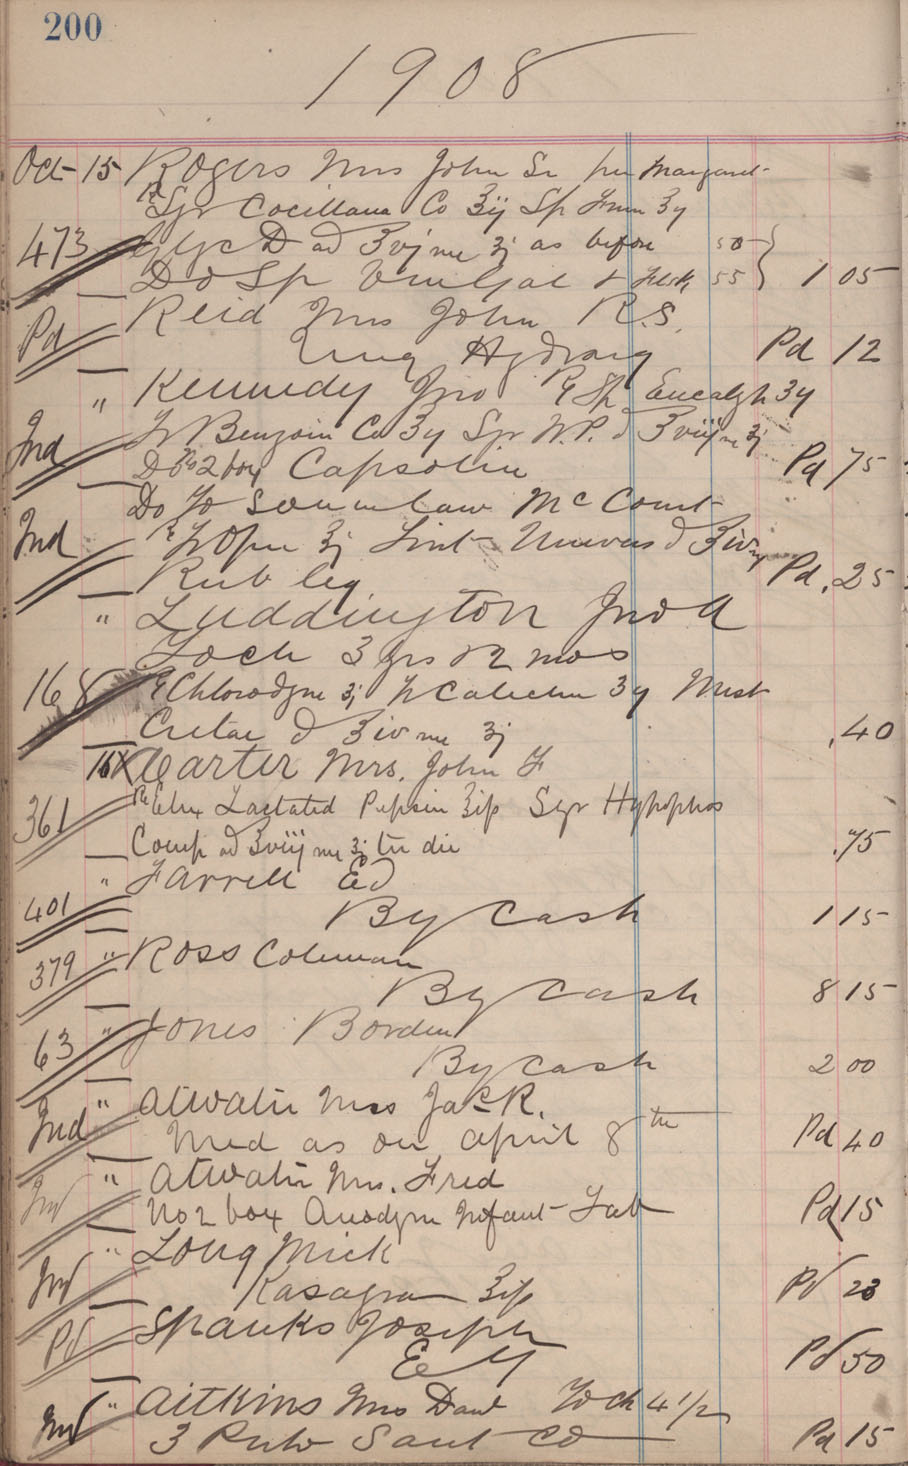 200
1908
Oct 15 Rogers Mrs John Sr per Margaret
Rx Syr Cocillana Co ʒij Sp Frum ʒij
473 Glyc D ad ʒvj me ʒj as before 50
Do Sp 55 1 05
Pd Reid Mrs John R.S.
Ung Hydrarg Pd 12
" Kennedy Jno Rx Sp Eucalyp ʒij
Ind Tr Benzoin Co ʒij Syr W.P. ad ʒviij me ʒj
Do No 2 box Capsolin Pd 75
Do To son in law McCourt
Ind Rx Tr Opii ʒj Lint ad ʒiv
Rub leg Pd .25
" Luddington Jno A
To ch 3 yrs & 2 mos
168 Rx Chlorodyne ʒj Tr Catechu ʒij Mist
Cretae ad ʒiv me ʒj .40
16 X Carter Mrs. John F
361 Rx Elix Lactated Pepsin ʒiss Syr Hypophos
Comp ad ʒviij me ʒj ter die .75
" Farrell Ed
401 By Cash 1 15
379 " Ross Coleman
By Cash 8 15
63 " Jones Borden
By Cash 2 00
Ind " Atwater Mrs Jack R.
Med as on April 8th Pd 40
Ind " Atwater Mrs. Fred
No 2 box Anodyne Infant Tab Pd 15
Ind " Long Mick
Kasagra ʒiss Pd 23
Pd Spanks Joseph
Pd 50
Ind " Aitkins Mrs Danl To ch 4 1/2
3 Pulv Sant Co Pd 15